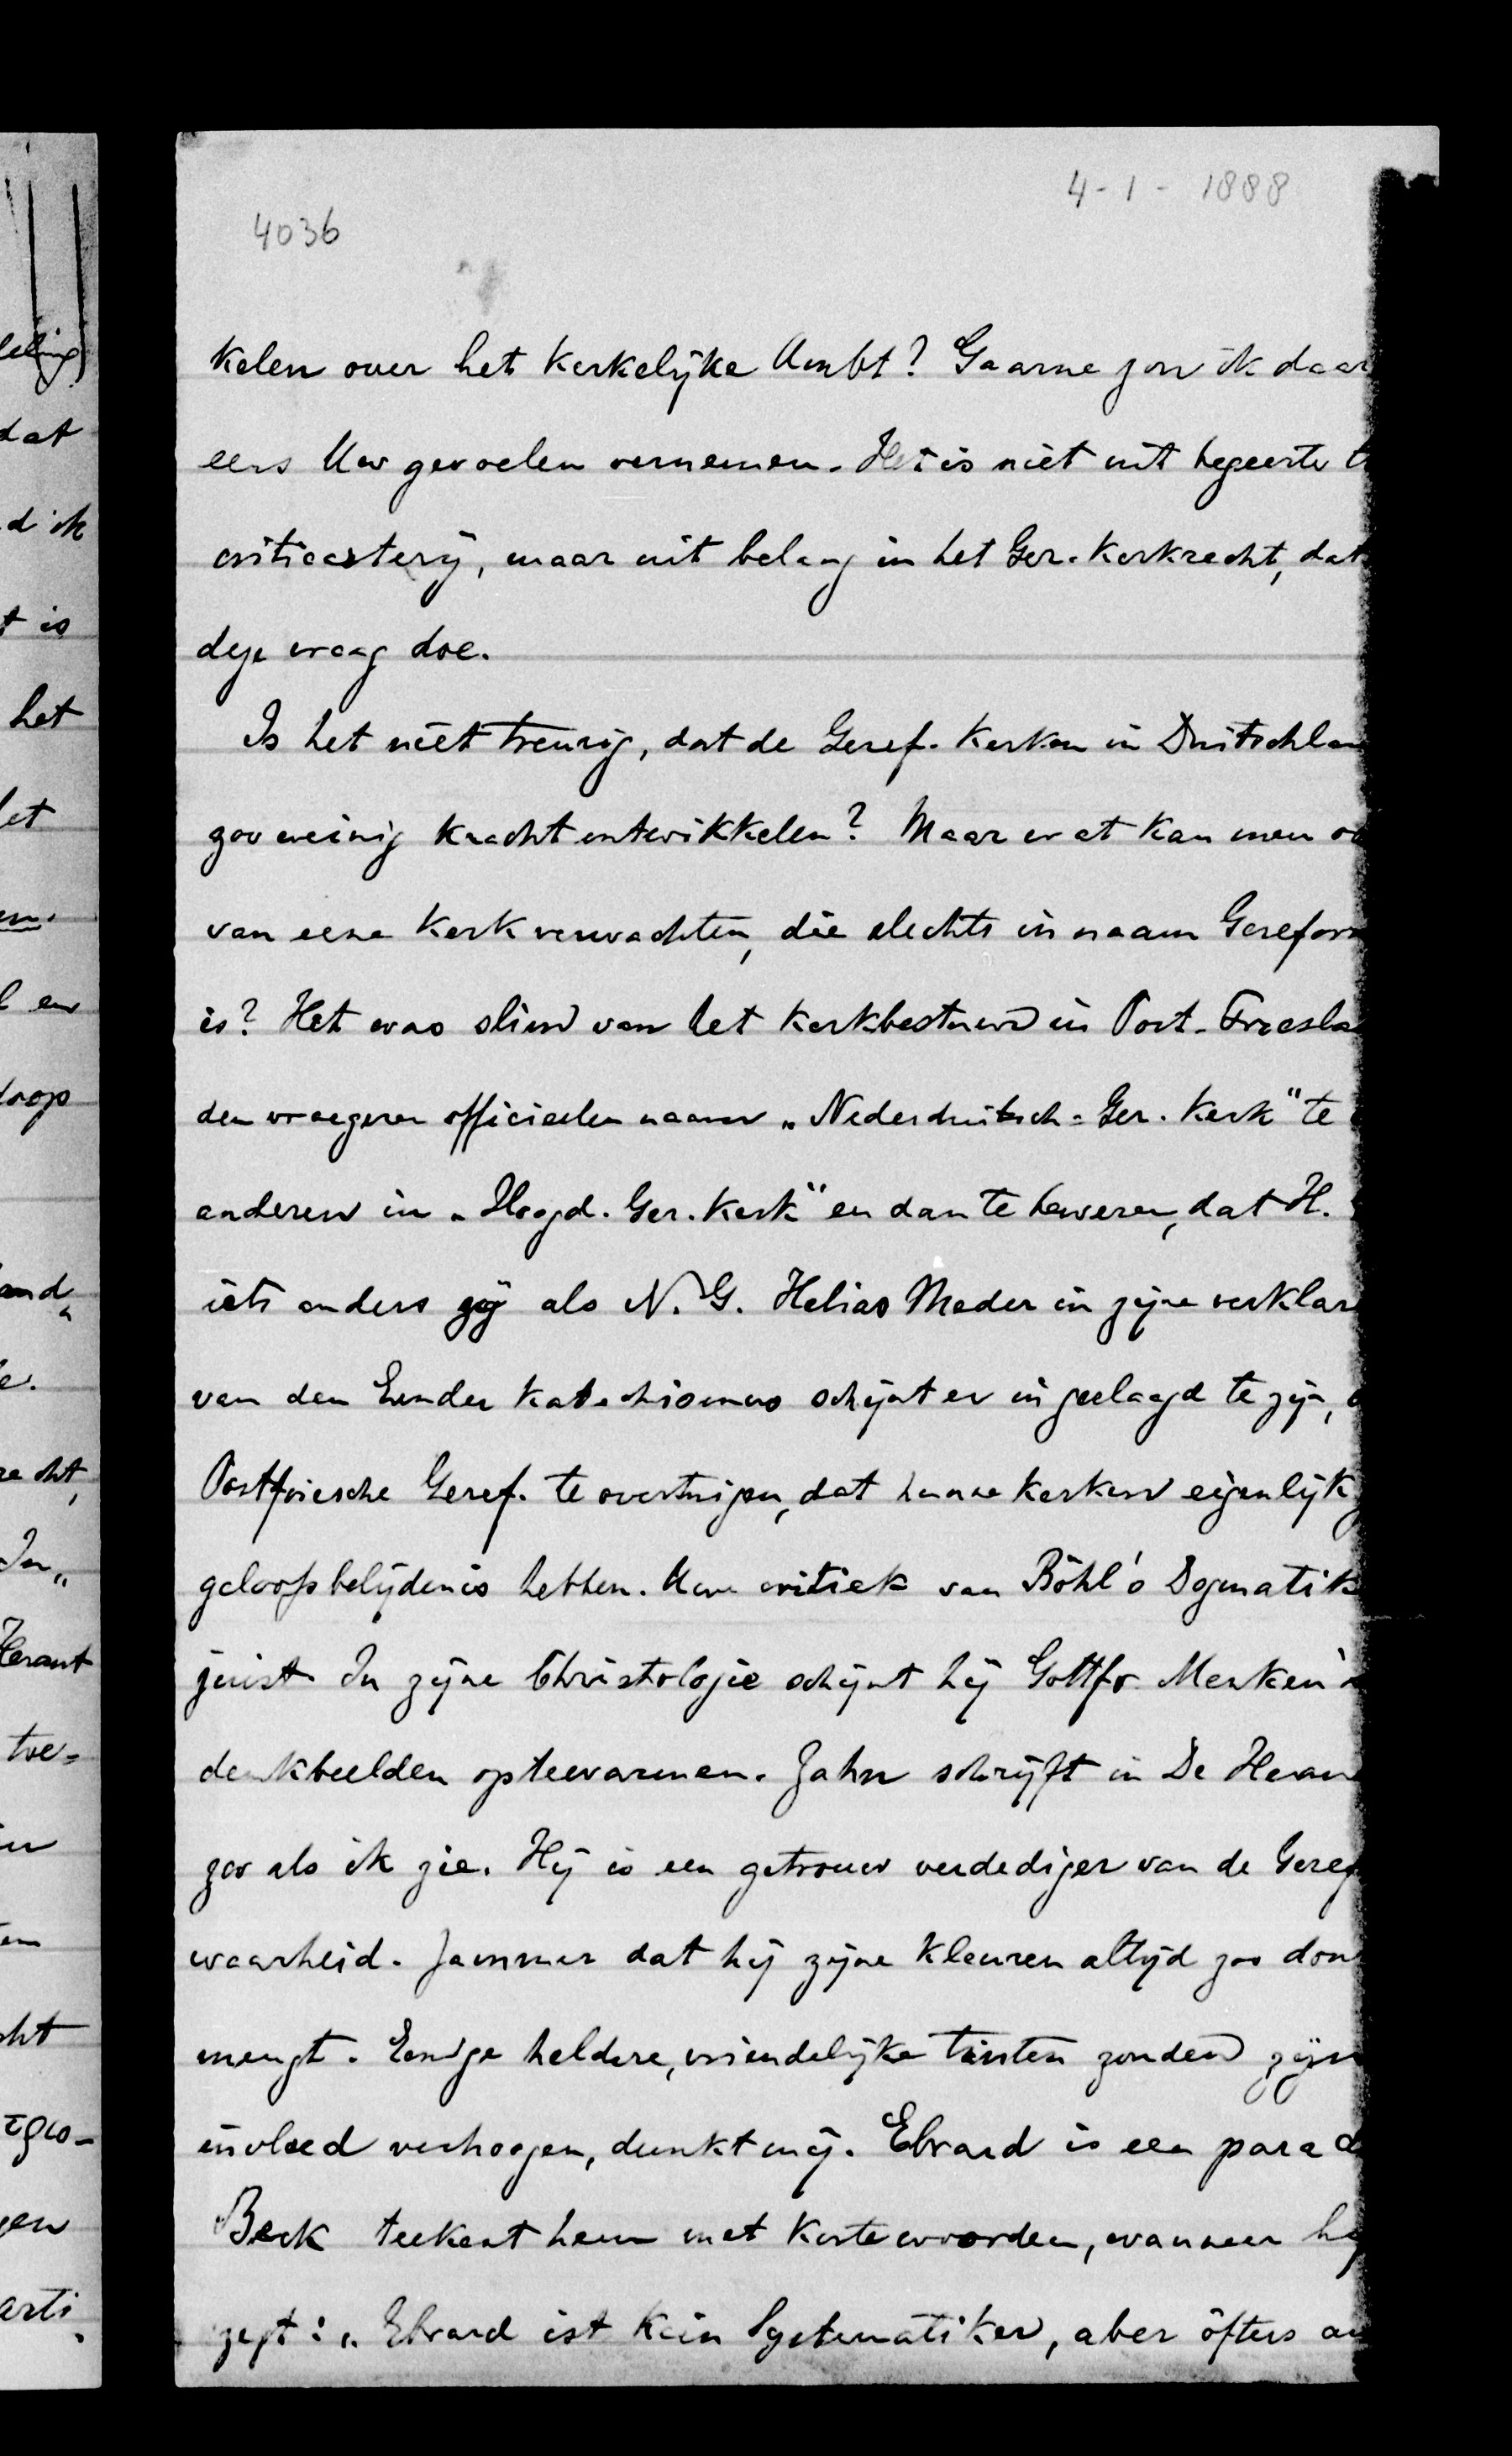 4-1-1888
4036
kelen over het kerkelijke Ambt? Gaarne zou ik daar
eens Uw gevoelen vernemen. Het is niet uit begeerte t
criticasterij, maar uit belang in het Ger. Kerkrecht, dat
deze vraag doe.
Is het niet treurig, dat de Geref. Kerken in Duitschlan
zoo weinig kracht ontwikkelen? Maar wat kan men oo
van eene Kerk verwachten, die slechts in naam Gerefor
is? Het was slim van het Kerkbestuur in Oost-Friesla
den vroegeren officieelen naam „Nederduitsch-Ger. Kerk" te
anderen in „Hoogd. Ger. Kerk" en dan te beweren, dat H.
iets anders zij als N. G. Helias Meder in zijne verklar
van den Emder Katechismus schijnt er in geslaagd te zijn,
Oostfriesche Geref. te overtuigen, dat hunne Kerken eigenlijk
geloofsbelijdenis hebben. Uwe critiek van Böhl's Dogmatik
juist. In zijne Christologie schijnt hij Gottfr. Menken's
denkbeelden optewarmen. Zahn schrijft in De Herau
zoo als ik zie. Hij is een getrouw verdediger van de Geref
waarheid. Jammer dat hij zijne kleuren altijd zoo don
mengt. Eenige heldere, vriendelijke tinten zouden zijn
invloed verhoogen, dunkt mij. Ebrard is een parad
Beck teekent hem met korte woorden, wanneer hij
zegt: „Ebrard ist kein Systematiker, aber öfters au
feling
dat
d ik
t is
het
let
en.
l en
doop
and„
e.
recht,
In„
Heraut
toe=
in
en
cht
gen
arti„